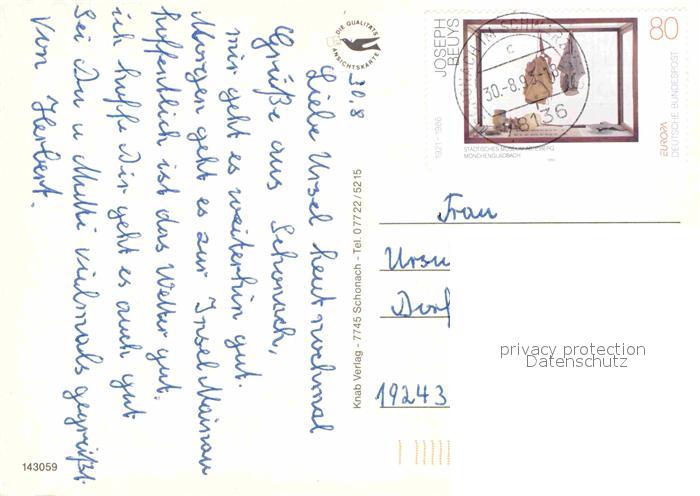 30.8
Liebe Ursel heut nochmal
Grüße aus Schonach,
mir geht es weiterhin gut.
Morgen geht es zur Insel Mainau
hoffentlich ist das Wetter gut.
ich hoffe Dir geht es auch gut
Sei Du u Mutti vielmals gegrüßt.
Von Herbert.
143059
DIE QUALITÄTS
ANSICHTSKARTE
Knab Verlag - 7745 Schonach - Tel. 07722/5215
JOSEPH
BEUYS
1921-1986
80
STÄDTISCHES MUSEUM ABTEIBERG
MÖNCHENGLADBACH
EUROPA
DEUTSCHE BUNDESPOST
SCHONACH IM SCHWARZW
c
30.-8.93-18
78136
Frau
Ursu
Dorf
19243
privacy protection
Datenschutz